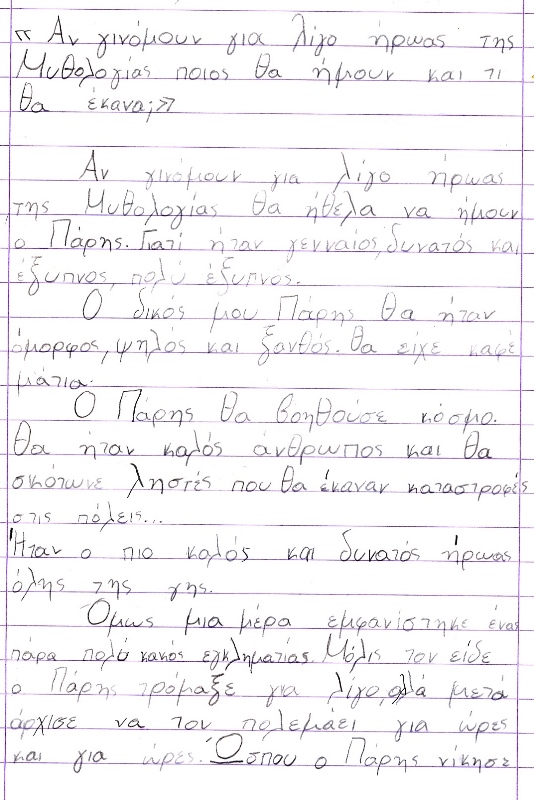 « Αν γινόμουν για λίγο ήρωας της
Μυθολογίας ποιος θα ήμουν και τι
θα έκανα;»
Αν γινόμουν για λίγο ήρωας
της Μυθολογίας θα ήθελα να ήμουν
ο Πάρης. Γιατί ήταν γενναίος, δυνατός και
έξυπνος, πολύ έξυπνος.
Ο δικός μου Πάρης θα ήταν
όμορφος, ψηλός και ξανθός. θα είχε καφέ
μάτια.
Ο Πάρης θα βοηθούσε κόσμο.
Θα ήταν καλός άνθρωπος και θα
σκότωνε ληστές που θα έκαναν καταστροφές
στις πόλεις...
Ήταν ο πιο καλός και δυνατός ήρωας
όλης της γης.
Όμως μια μέρα εμφανίστηκε ένας
πάρα πολύ κακός εγκληματίας. Μόλις τον είδε
ο Πάρης τρόμαξε για λίγο, αλλά μετά
άρχισε να τον πολεμάει για ώρες
και για ώρες. Ώσπου ο Πάρης νίκησε